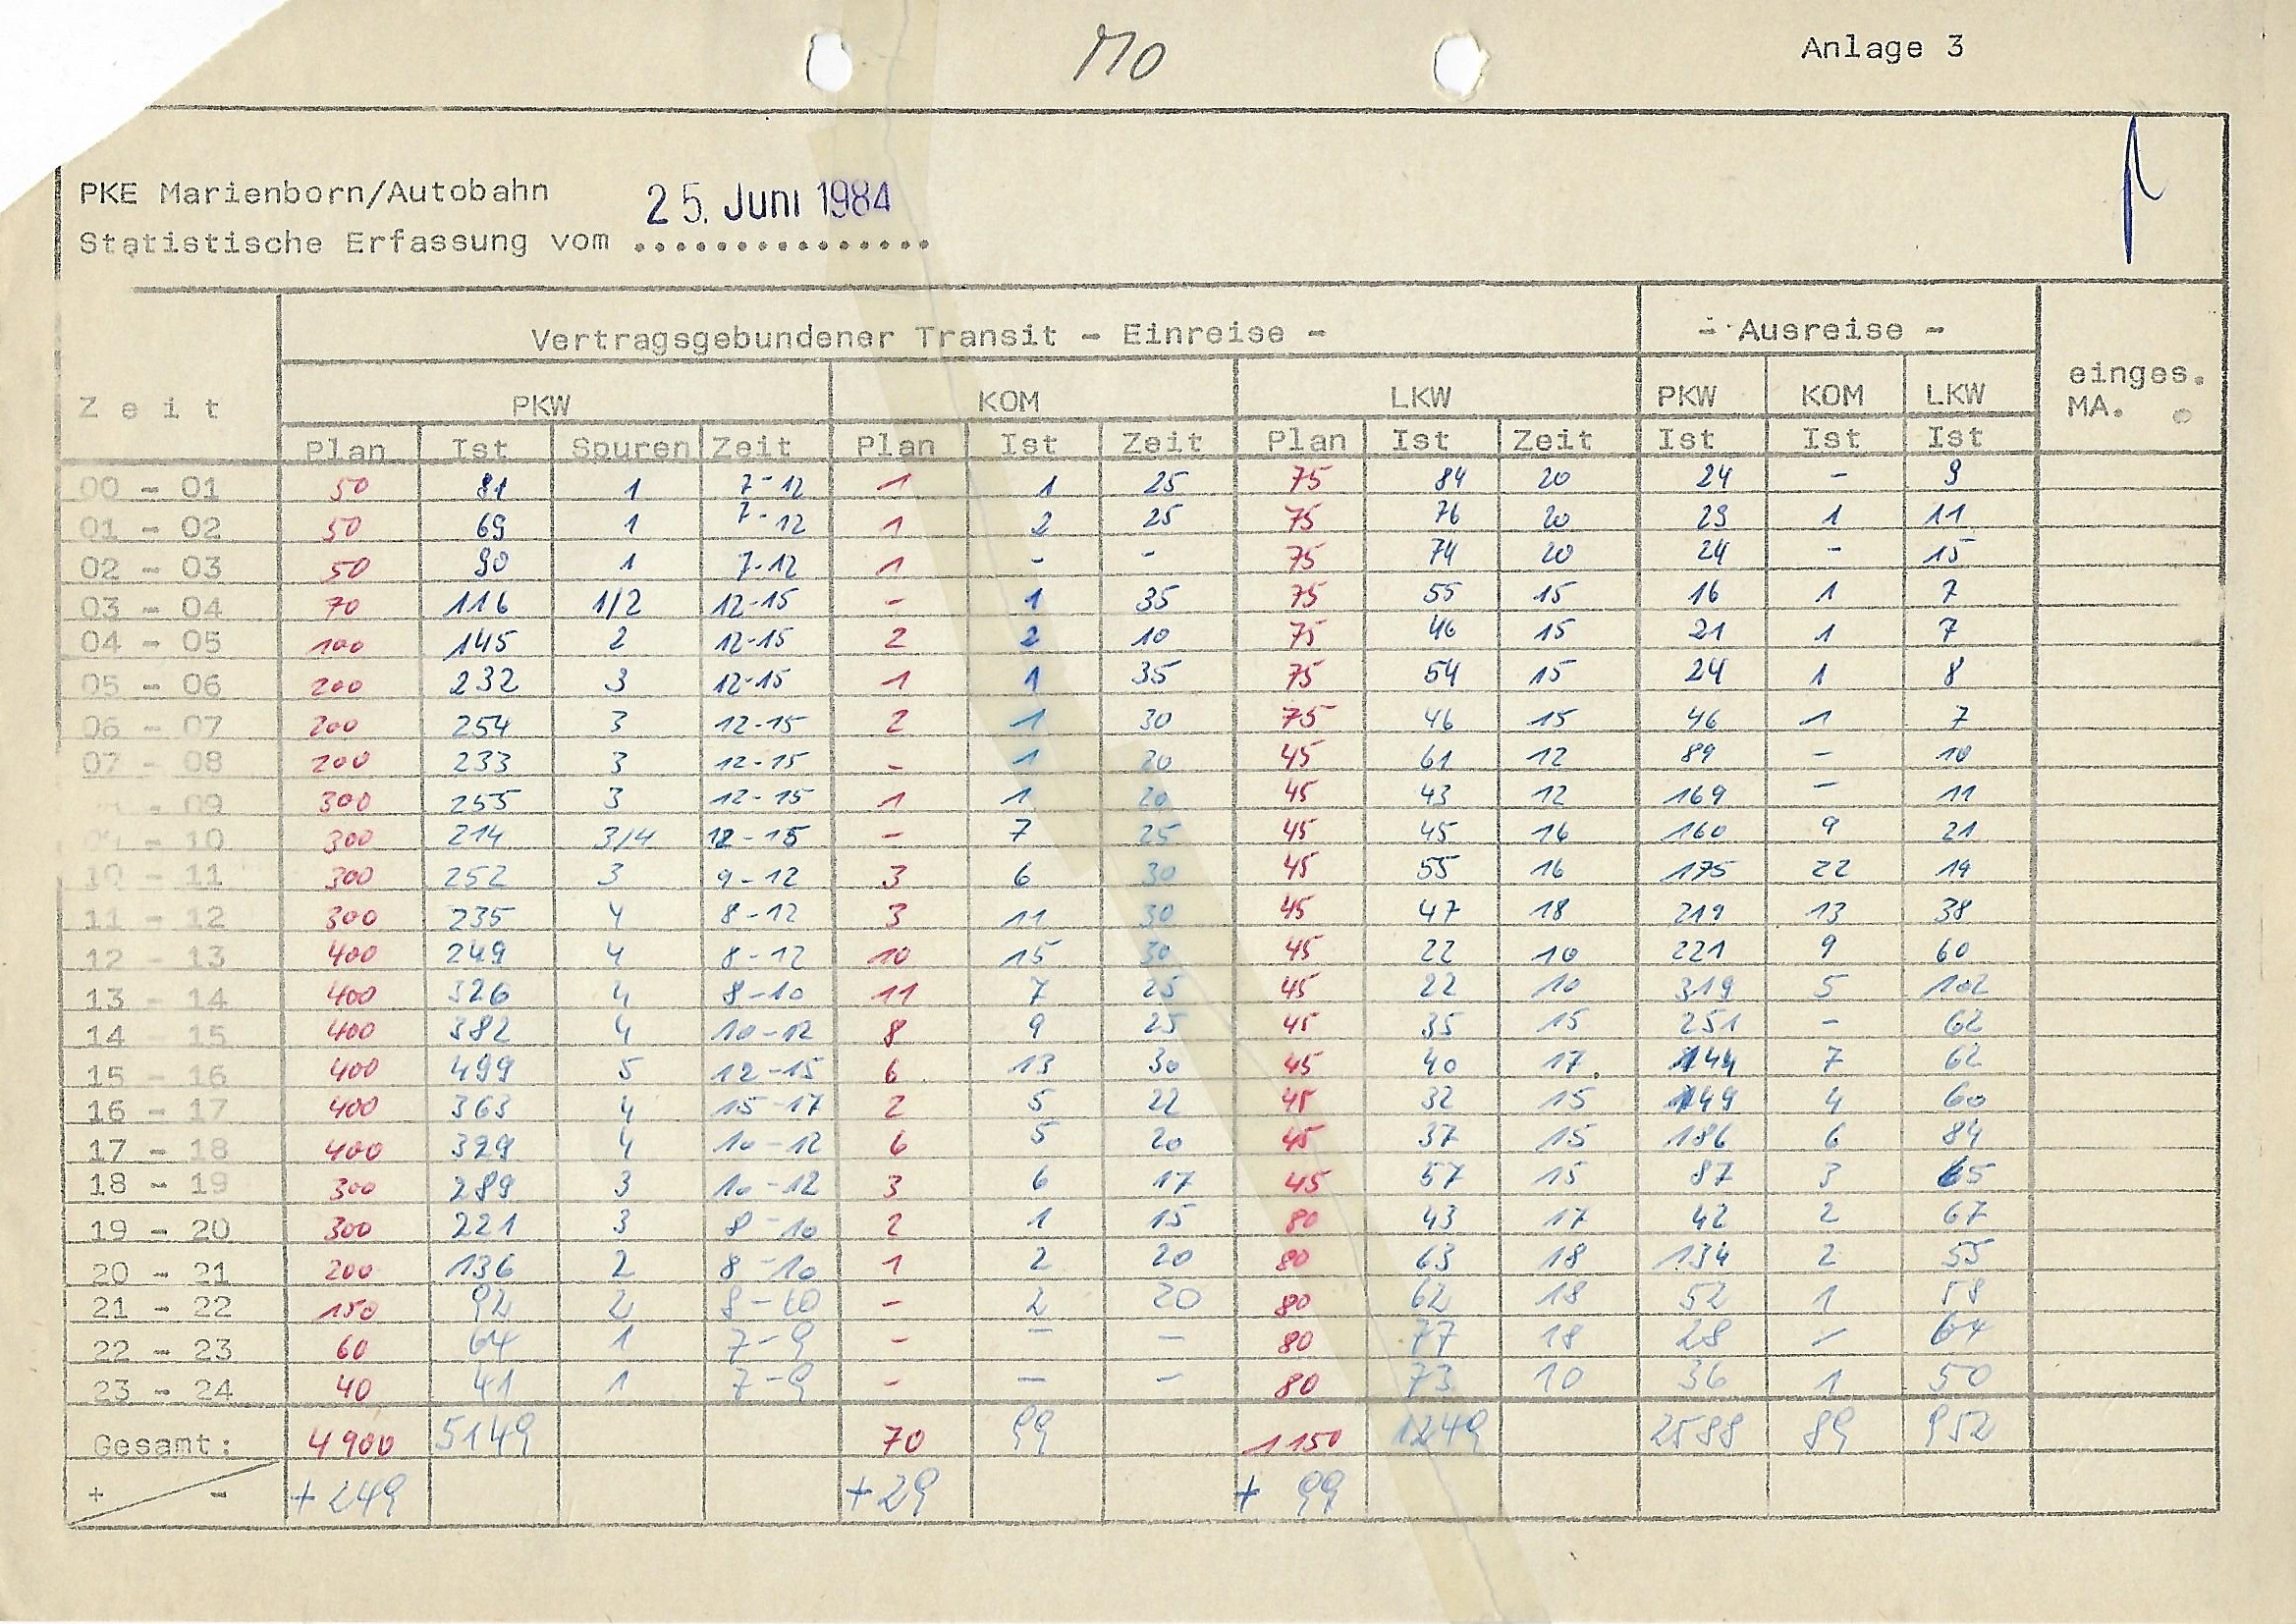 MO
Anlage 3
PKE Marienborn/Autobahn 25. Juni 1984
Statistische Erfassung vom ...............
Vertragsgebundener Transit - Einreise - - Ausreise -
Zeit PKW KOM LKW PKW KOM LKW einges. MA.
Plan Ist Spuren Zeit Plan Ist Zeit Plan Ist Zeit Ist Ist Ist
00 - 01 50 81 1 7-12 1 1 25 75 84 20 24 - 9
01 - 02 50 69 1 7-12 1 2 25 75 76 20 29 1 11
02 - 03 50 90 1 7-12 1 - - 75 74 20 24 - 15
03 - 04 70 116 1/2 12-15 - 1 35 75 55 15 16 1 7
04 - 05 100 145 2 12-15 2 2 10 75 46 15 21 1 7
05 - 06 200 232 3 12-15 1 1 35 75 54 15 24 1 8
06 - 07 200 254 3 12-15 2 1 30 75 46 15 46 1 7
07 - 08 200 233 3 12-15 - 1 20 45 61 12 89 - 10
- 09 300 255 3 12-15 1 1 20 45 43 12 169 - 11
- 10 300 214 3/4 12-15 - 7 25 45 45 16 160 9 21
10 - 11 300 252 3 9-12 3 6 30 45 55 16 175 22 19
11 - 12 300 235 4 8-12 3 11 30 45 47 18 219 13 38
12 - 13 400 249 4 8-12 10 15 30 45 22 10 221 9 60
13 - 14 400 326 4 8-10 11 7 25 45 22 10 319 5 102
14 - 15 400 382 4 10-12 8 9 25 45 35 15 251 - 62
15 - 16 400 499 5 12-15 6 13 30 45 40 17 144 7 62
16 - 17 400 363 4 15-17 2 5 22 45 32 15 149 4 60
17 - 18 400 329 4 10-12 6 5 20 45 37 15 186 6 84
18 - 19 300 289 3 10-12 3 6 17 45 57 15 87 3 65
19 - 20 300 221 3 8-10 2 1 15 80 43 17 42 2 67
20 - 21 200 136 2 8-10 1 2 20 80 63 18 134 2 55
21 - 22 150 92 2 8-10 - 2 20 80 62 18 52 1 58
22 - 23 60 64 1 7-9 - - - 80 77 18 28 - 64
23 - 24 40 41 1 7-9 - - - 80 73 10 36 1 50
Gesamt: 4900 5149 70 99 1150 1249 2588 89 952
+ - +249 +29 + 99